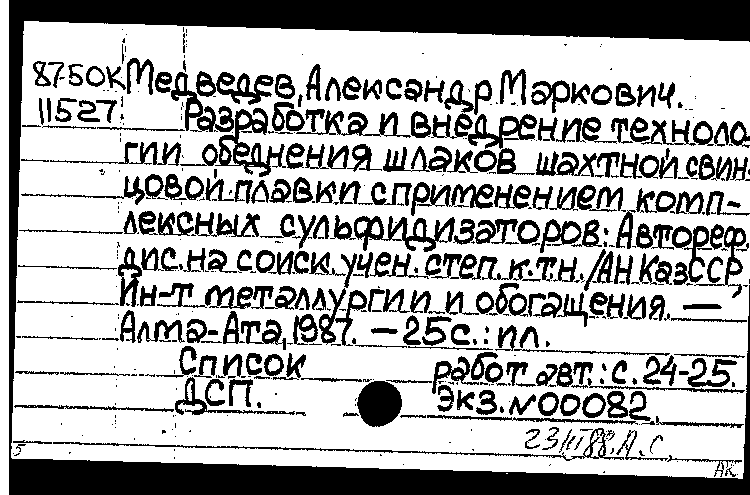 87-50К Медведев, Александр Маркович.
11527 Разработка и внедрение техноло
гии обеднения шлаков шахтной свин-
цовой плавки с применением комп-
лексных сульфидизаторов: Автореф.
дис. на соиск. учен. степ. к.т.н. /АН КазССР,
Ин-т металлургии и обогащения. —
Алма-Ата, 1987. — 25с.: ил.
Список работ авт.: с. 24-25.
ДСП. Экз. №00082.
23/III 88. А.С.
5 АК